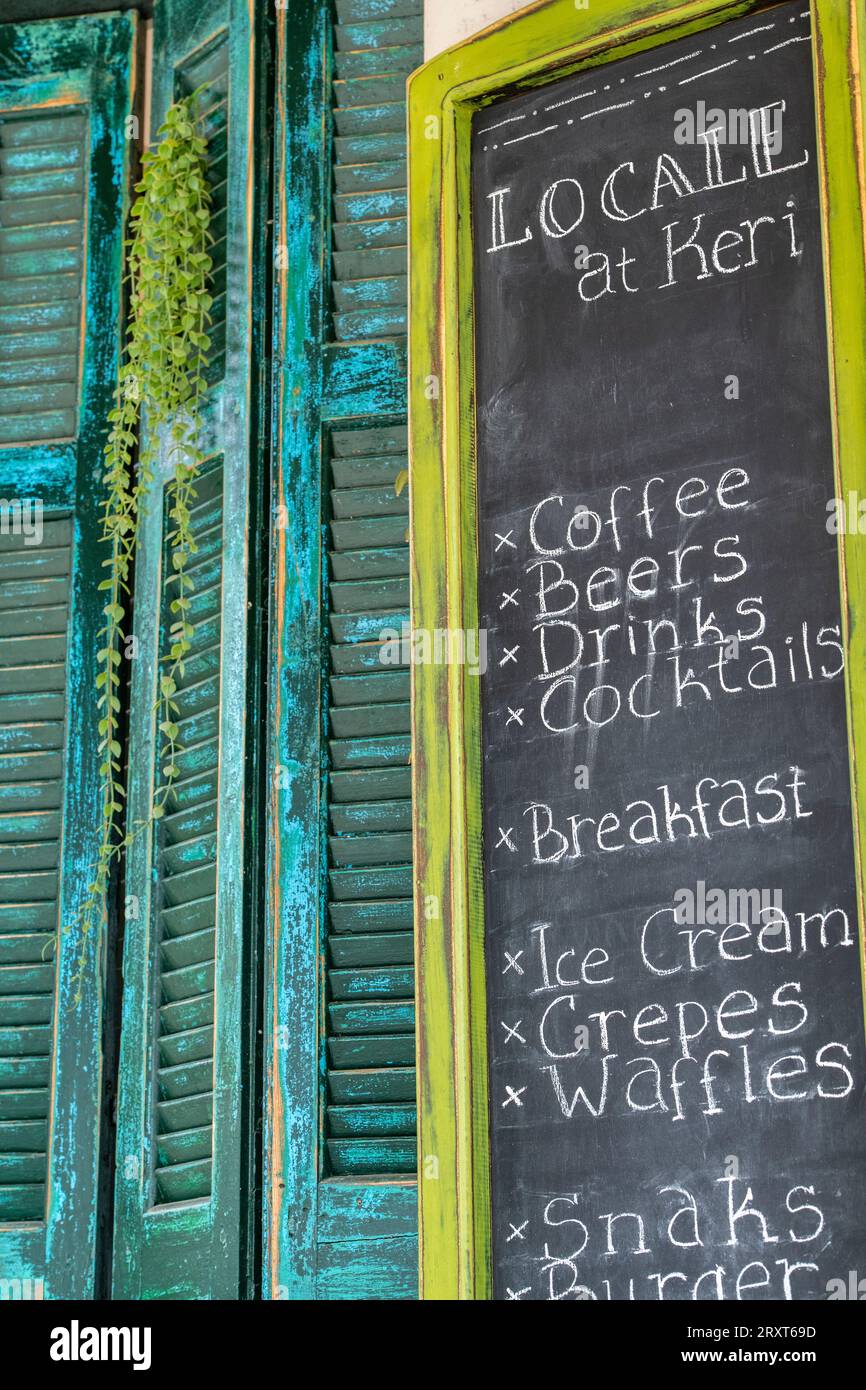 LOCALE
at Keri
x Coffee
x Beers
x Drinks
x Cocktails
x Breakfast
x Ice Cream
x Crepes
x Waffles
x Snaks
x Burger
alamy
Image ID: 2RXT69D
www.alamy.com